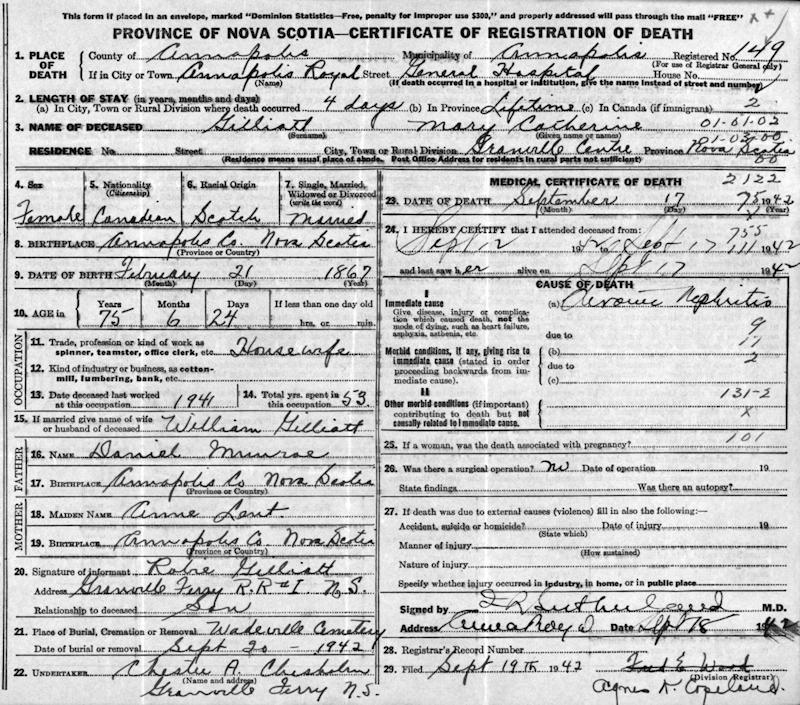 This form if placed in an envelope, marked "Dominion Statistics—Free, penalty for improper use $300," and properly addressed will pass through the mail "FREE"
PROVINCE OF NOVA SCOTIA—CERTIFICATE OF REGISTRATION OF DEATH
1. PLACE OF DEATH County of Annapolis Municipality of Annapolis Registered No. 149
(For use of Registrar General only)
If in City or Town Annapolis Royal Street General Hospital House No.
(Name) (If death occurred in a hospital or institution, give the name instead of street and number)
2. LENGTH OF STAY (in years, months and days)
(a) In City, Town or Rural Division where death occurred 4 days (b) In Province Lifetime (c) In Canada (if immigrant) 2
3. NAME OF DECEASED Gilliatt Mary Catherine 01-01-02
(Surname) (Given name or names) 01-03-00
RESIDENCE No. Street City, Town or Rural Division Granville Centre Province Nova Scotia
(Residence means usual place of abode. Post Office Address for residents in rural parts not sufficient) 00
4. Sex 5. Nationality (Citizenship) 6. Racial Origin 7. Single, Married, Widowed or Divorced (write the word)
Female Canadian Scotch Married
8. BIRTHPLACE Annapolis Co. Nova Scotia
(Province or Country)
9. DATE OF BIRTH February 21 1867
(Month) (Day) (Year)
10. AGE in Years Months Days If less than one day old
75 6 24 hrs. or min.
OCCUPATION
11. Trade, profession or kind of work as spinner, teamster, office clerk, etc. Housewife
12. Kind of industry or business, as cotton-mill, lumbering, bank, etc.
13. Date deceased last worked at this occupation 1941 14. Total yrs. spent in this occupation 53
15. If married give name of wife or husband of deceased William Gilliatt
FATHER
16. NAME Daniel Munroe
17. BIRTHPLACE Annapolis Co Nova Scotia
(Province or Country)
MOTHER
18. MAIDEN NAME Anne Lent
19. BIRTHPLACE Annapolis Co. Nova Scotia
(Province or Country)
20. Signature of informant Gilliatt
Address Granville Ferry R.R #1 N.S.
Relationship to deceased Son
21. Place of Burial, Cremation or Removal Wadeville Cemetery
Date of burial or removal Sept 20 - 1942
22. UNDERTAKER Chester A. Chisholm
(Name and address)
Granville Ferry N.S.
MEDICAL CERTIFICATE OF DEATH 2122
23. DATE OF DEATH September 17 1942
(Month) (Day) (Year)
24. I HEREBY CERTIFY that I attended deceased from: 755
Sept 12 1942 Sept 17 1942
and last saw her alive on Sept 17 1942
CAUSE OF DEATH
I
Immediate cause (a) Chronic Nephritis
Give disease, injury or complication which caused death, not the mode of dying, such as heart failure, asphyxia, asthenia, etc.
9
due to
17
Morbid conditions, if any, giving rise to immediate cause (stated in order proceeding backwards from immediate cause).
(b) 2
due to
(c)
II 131-2
Other morbid conditions (if important) contributing to death but not causally related to immediate cause.
x
101
25. If a woman, was the death associated with pregnancy?
26. Was there a surgical operation? no Date of operation 19
State findings Was there an autopsy?
27. If death was due to external causes (violence) fill in also the following:—
Accident, suicide or homicide? Date of injury 19
(State which)
Manner of injury
(How sustained)
Nature of injury
Specify whether injury occurred in industry, in home, or in public place
Signed by M.D.
Address Date Sept 18 1942
28. Registrar's Record Number
29. Filed Sept 19th 1942 Fred E Wood
(Division Registrar)
Agnes K. Copeland.